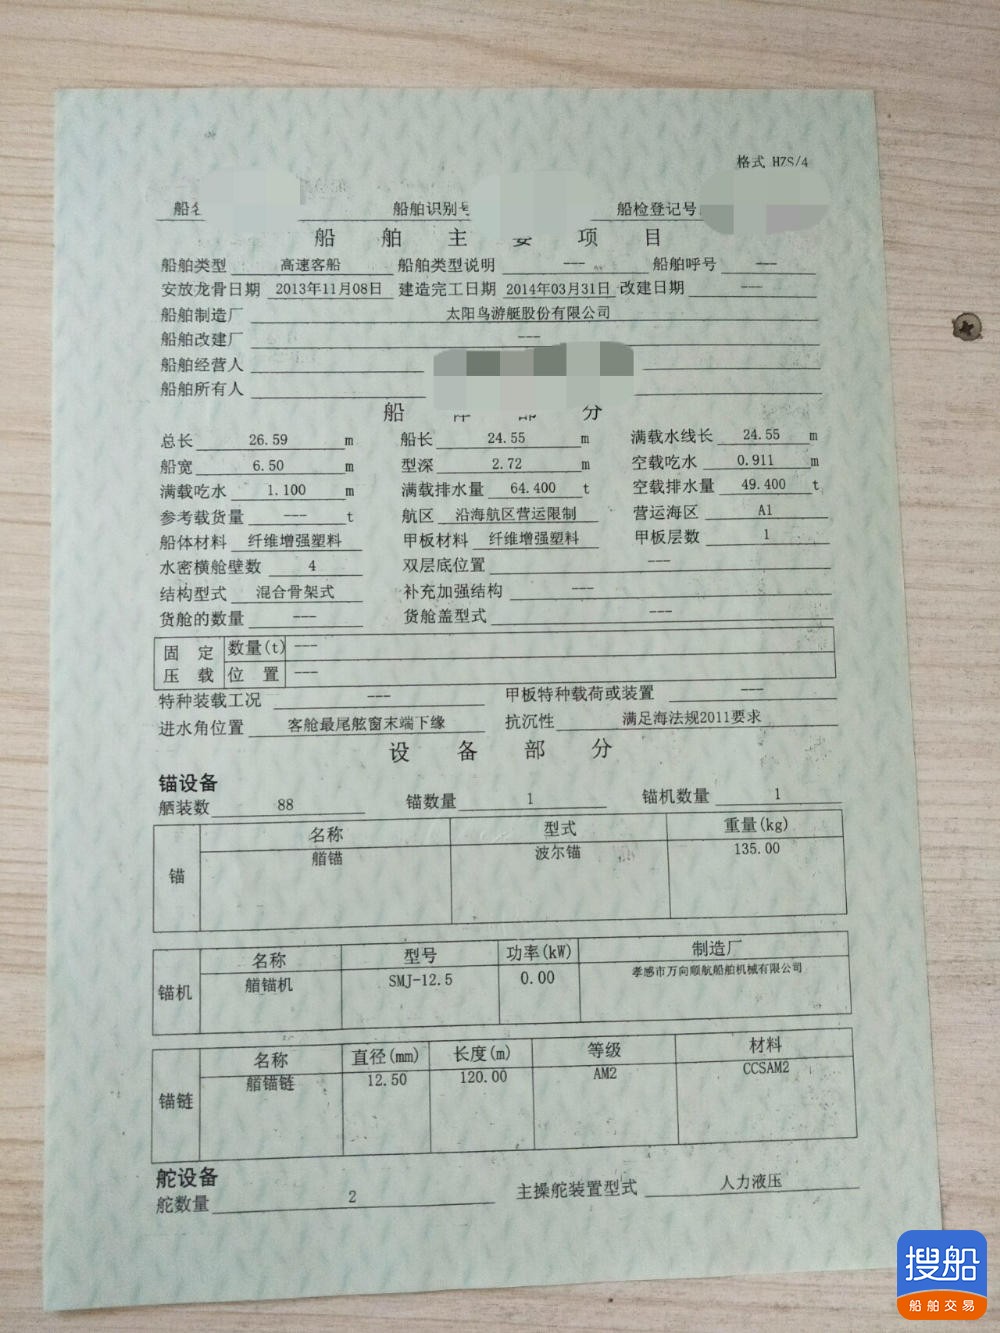 格式 HZS/4
船名 船舶识别号 船检登记号
船 舶 主 要 项 目
船舶类型 高速客船 船舶类型说明 --- 船舶呼号 ---
安放龙骨日期 2013年11月08日 建造完工日期 2014年03月31日 改建日期 ---
船舶制造厂 太阳鸟游艇股份有限公司
船舶改建厂 ---
船舶经营人
船舶所有人
船 体 部 分
总长 26.59 m 船长 24.55 m 满载水线长 24.55 m
船宽 6.50 m 型深 2.72 m 空载吃水 0.911 m
满载吃水 1.100 m 满载排水量 64.400 t 空载排水量 49.400 t
参考载货量 --- t 航区 沿海航区营运限制 营运海区 A1
船体材料 纤维增强塑料 甲板材料 纤维增强塑料 甲板层数 1
水密横舱壁数 4 双层底位置 ---
结构型式 混合骨架式 补充加强结构 ---
货舱的数量 --- 货舱盖型式 ---
固 定 数量(t) ---
压 载 位 置 ---
特种装载工况 --- 甲板特种载荷或装置 ---
进水角位置 客舱最尾舷窗末端下缘 抗沉性 满足海法规2011要求
设 备 部 分
锚设备
舾装数 88 锚数量 1 锚机数量 1
名称 型式 重量(kg)
锚 艏锚 波尔锚 135.00
名称 型号 功率(kW) 制造厂
锚机 艏锚机 SMJ-12.5 0.00 孝感市万向顺航船舶机械有限公司
名称 直径(mm) 长度(m) 等级 材料
锚链 艏锚链 12.50 120.00 AM2 CCSAM2
舵设备
舵数量 2 主操舵装置型式 人力液压
搜船
船舶交易